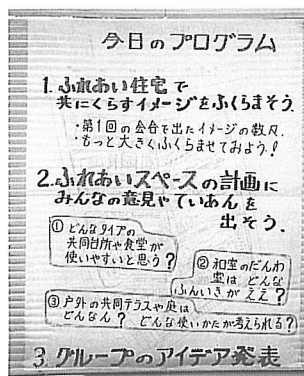 今日のプログラム
1. ふれあい住宅で
共にくらすイメージをふくらまそう.
・第1回の会合で出たイメージの数々.
・もっと大きくふくらませてみよう!
2. ふれあいスペースの計画に
みんなの意見やていあんを
出そう.
① どんなタイプの
共同台所や食堂が
使いやすいと思う?
② 和室のだんわ
室は どんな
ふんいきが ええ?
③ 戸外の共同テラスや庭は
どんなん? どんな使いかたが考えられる?
3. グループのアイデア発表